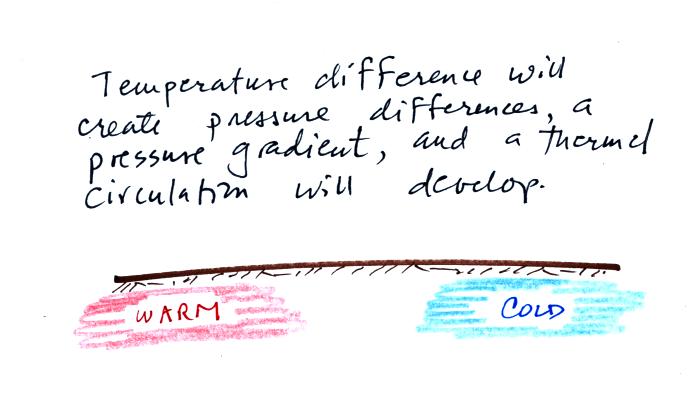 Temperature difference will
create pressure differences, a
pressure gradient, and a thermal
circulation will develop.
WARM
COLD